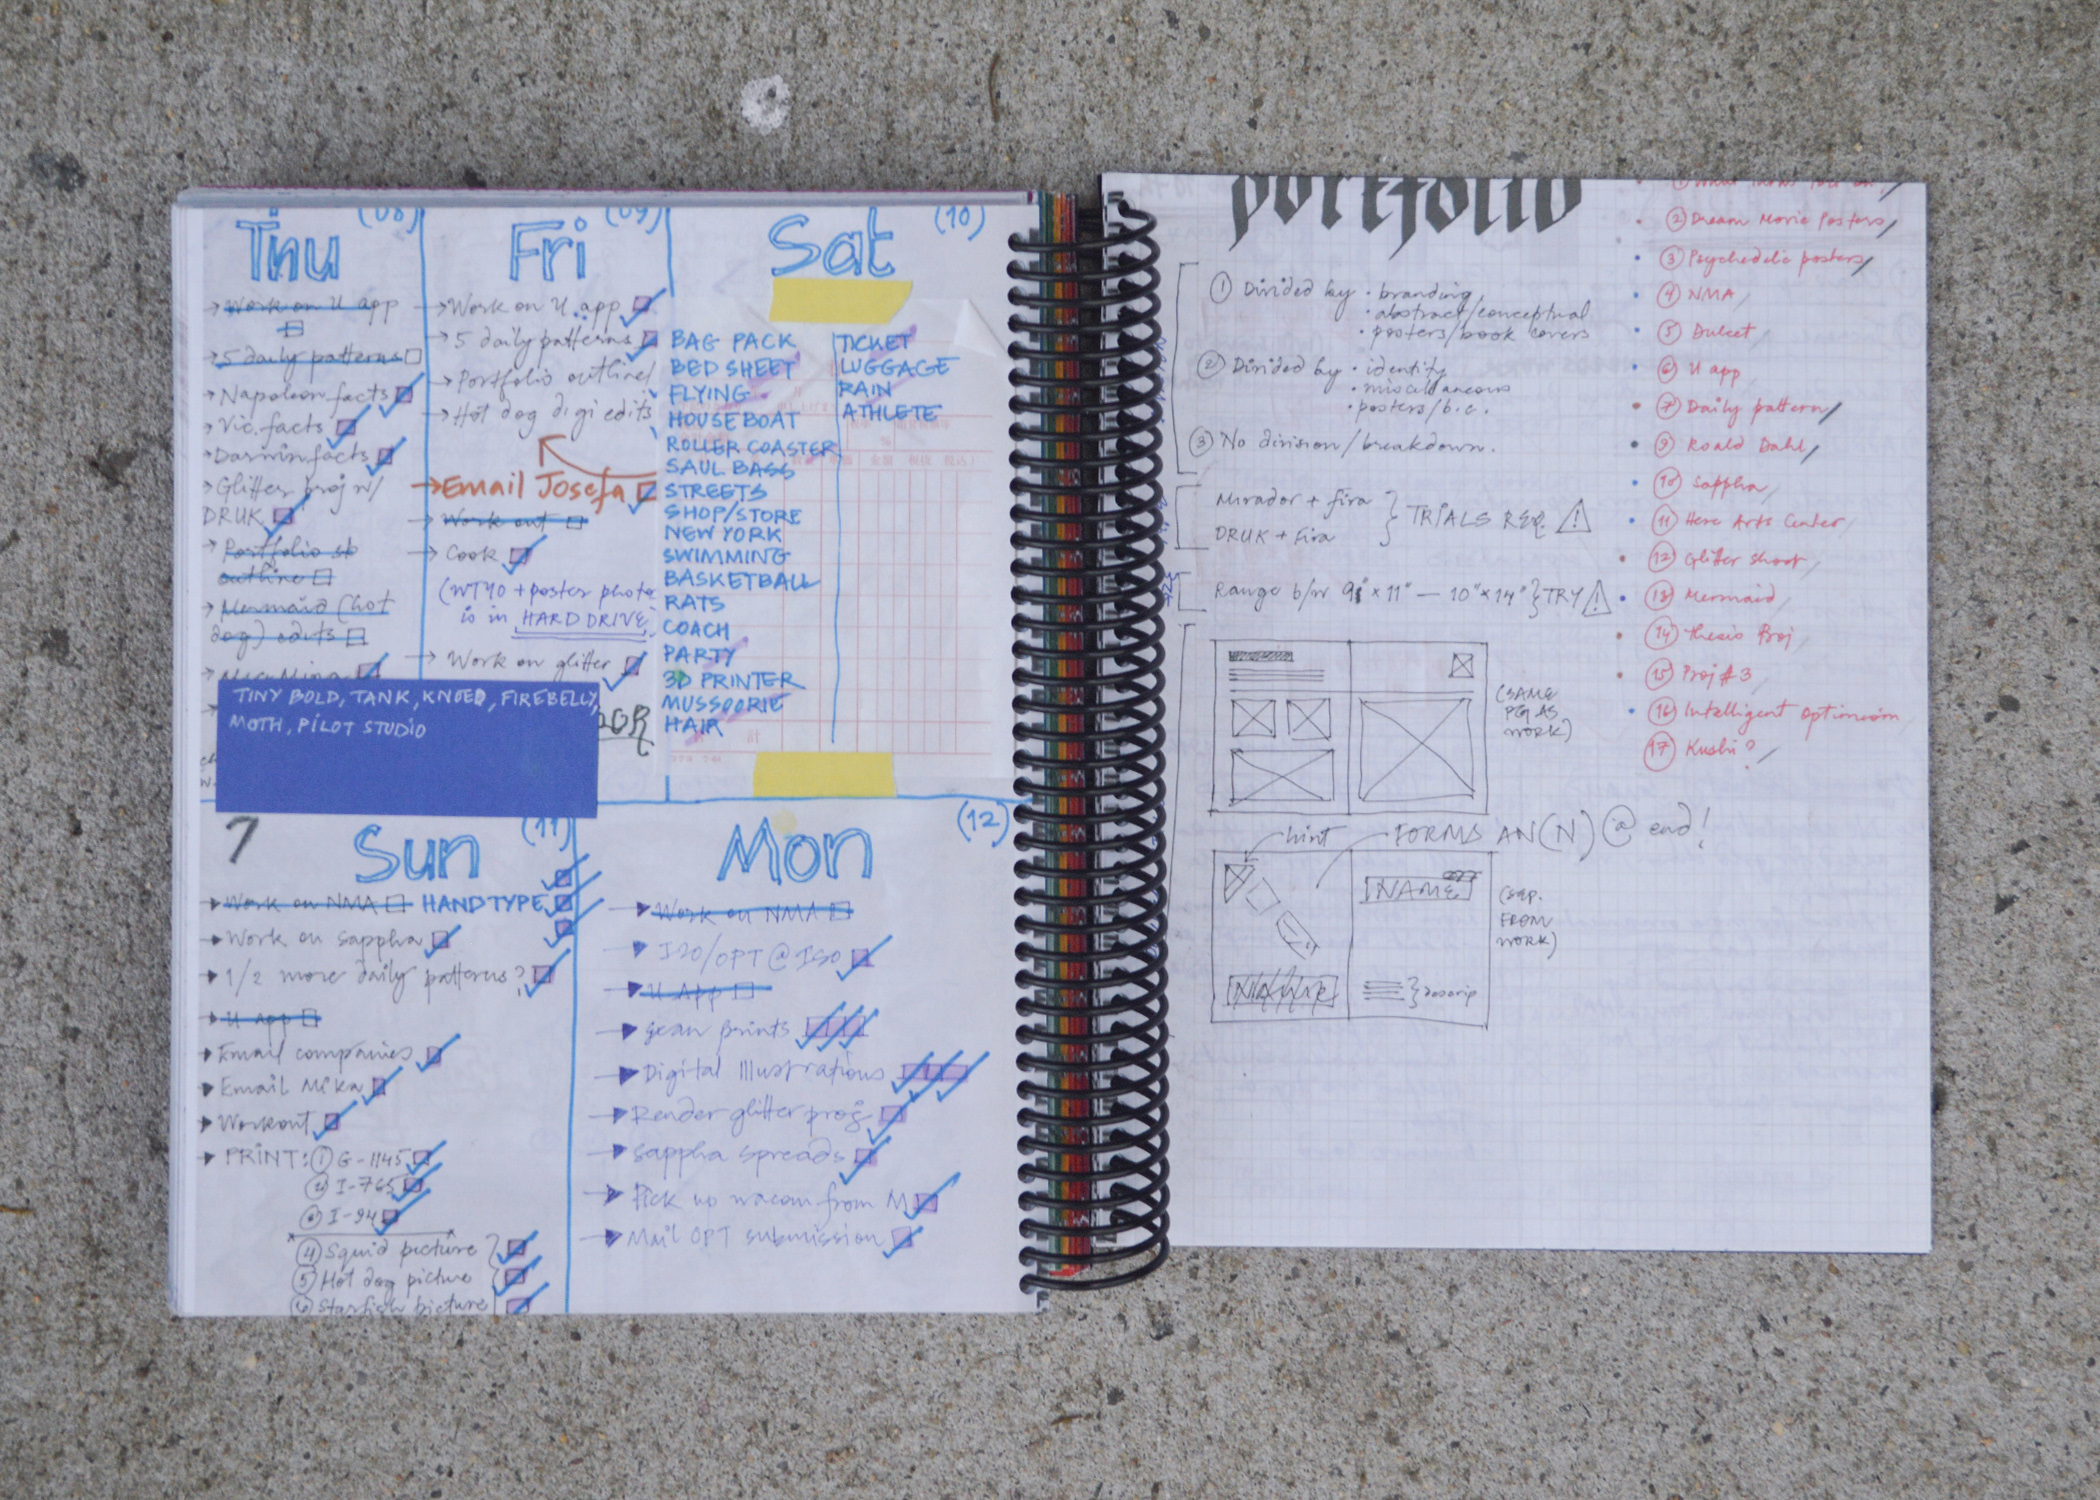 Thu (08)
→ Work on U app
→ 5 daily patterns
→ Napoleon facts
→ Vic. facts
→ Darwin facts
→ Glitter proj w/
DRUK
→ Portfolio sb
outline
→ Mermaid (hot
dog) edits
TINY BOLD, TANK, KNOED, FIREBELLY,
MOTH, PILOT STUDIO
Fri (09)
→ Work on U app
→ 5 daily patterns
→ Portfolio outline
→ Hot dog digi edits
→ Email Josefa
→ Work out
→ Cook
(WTYO + poster photo
is in HARD DRIVE)
→ Work on glitter
Sat (10)
BAG PACK
BED SHEET
FLYING
HOUSEBOAT
ROLLER COASTER
SAUL BASS
STREETS
SHOP/STORE
NEW YORK
SWIMMING
BASKETBALL
RATS
COACH
PARTY
3D PRINTER
MUSSOORIE
HAIR
TICKET
LUGGAGE
RAIN
ATHLETE
7
Sun (11)
Work on NMA HANDTYPE
Work on Sappha
1/2 more daily patterns?
U App
Email companies
Email Mika
Workout
PRINT: ① G-1145
② I-765
③ I-94
④ Squid picture
⑤ Hot dog picture
⑥ Starfish picture
Mon (12)
Work on NMA
I20/OPT @ ISO
U App
Scan prints
Digital Illustrations
Render glitter proj
Sappha spreads
Pick up wacom from M
Mail OPT submission
portfolio
① Divided by • branding
• abstract/conceptual
• posters/book covers
② Divided by • identity
• miscellaneous
• posters/b.c.
③ No division/breakdown.
Mirador + Fira
DRUK + Fira } TRIALS REQ.
Range b/w 9" × 11" — 10" × 14" } TRY
(SAME
PG AS
WORK)
hint
FORMS AN (N) @ end!
NAME
(SEP.
FROM
WORK)
} descrip
② Dream Movie Posters
③ Psychedelic posters
④ NMA
⑤ Dulcet
⑥ U app
⑦ Daily pattern
⑨ Roald Dahl
⑩ Sappha
⑪ Here Arts Center
⑫ Glitter shoot
⑬ Mermaid
⑭ Thesis Proj
⑮ Proj #3
⑯ Intelligent Optimism
⑰ Kushi?